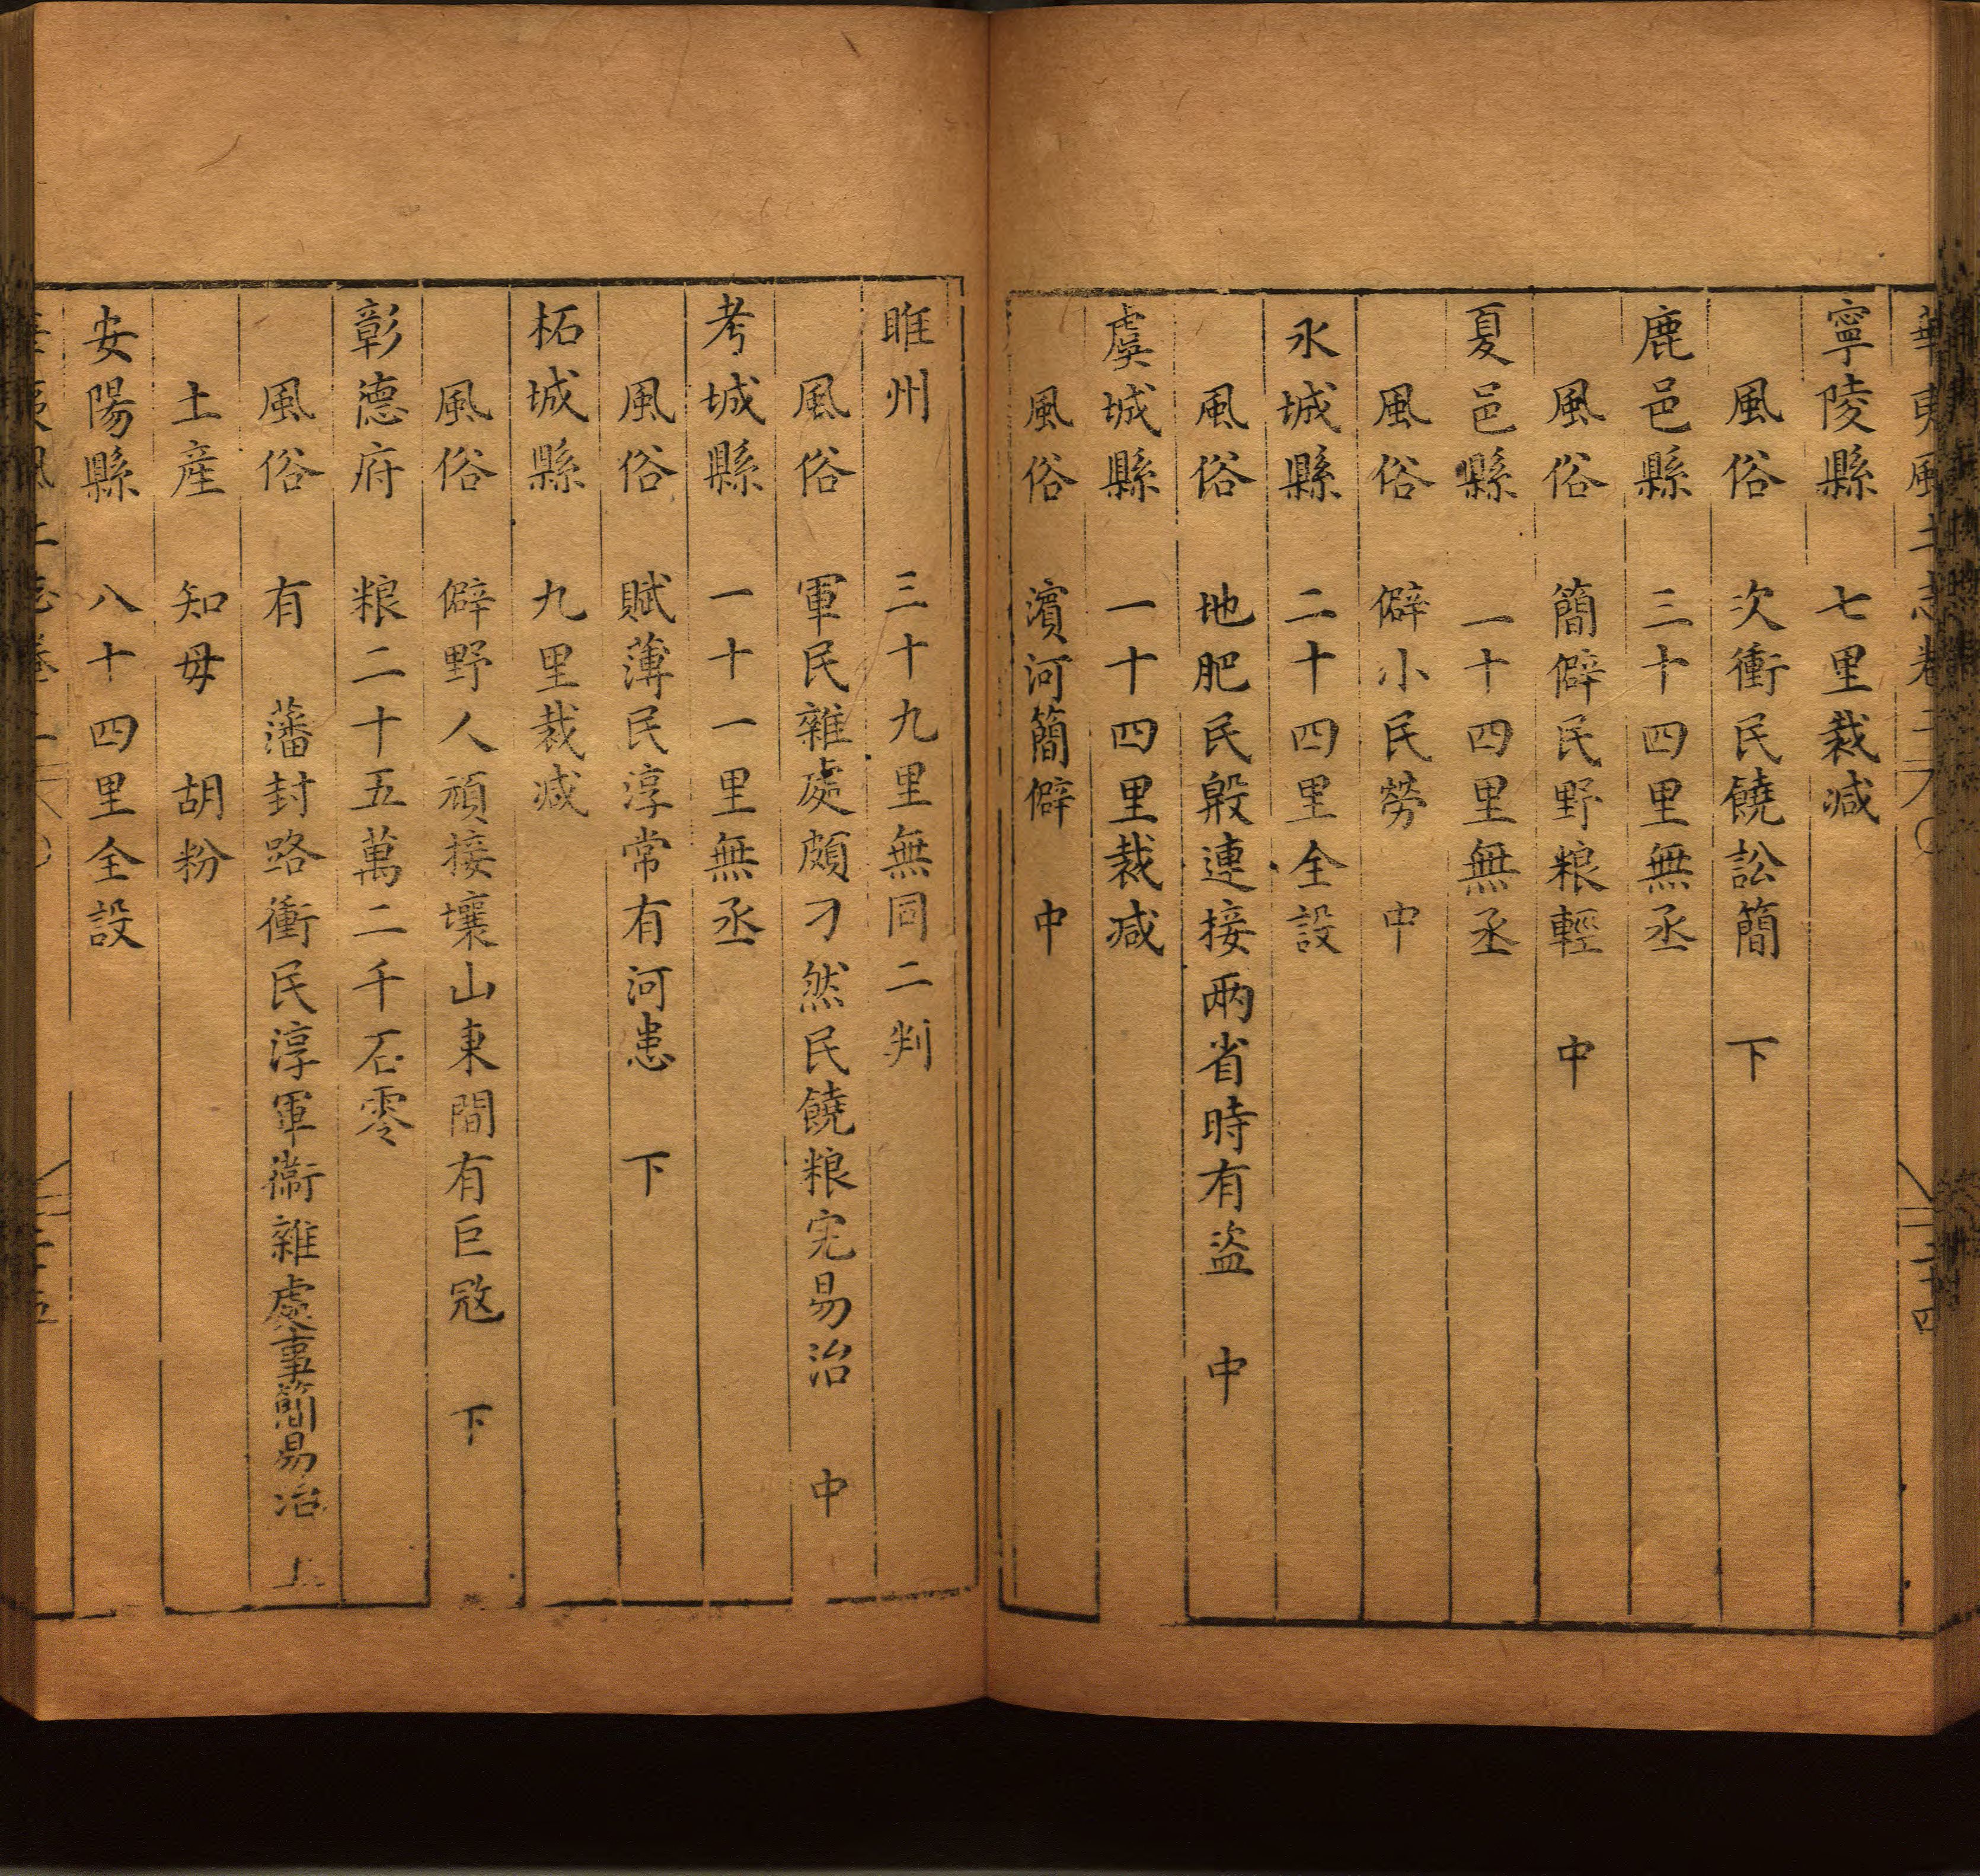 華夷風土志卷二 二十四
寧陵縣 七里裁减
風俗 次衝民饒訟簡 下
鹿邑縣 三十四里無丞
風俗 簡僻民野粮輕 中
夏邑縣 一十四里無丞
風俗 僻小民勞 中
永城縣 二十四里全設
風俗 地肥民殷連接兩省時有盗 中
虞城縣 一十四里裁减
風俗 濱河簡僻 中
睢州 三十九里無同二判
風俗 軍民雜處頗刁然民饒粮完易治 中
考城縣 一十一里無丞
風俗 賦薄民淳常有河患 下
柘城縣 九里裁减
風俗 僻野人頑接壤山東間有巨寇 下
彰德府 粮二十五萬二千石零
風俗 有 藩封路衝民淳軍衞雜處事簡易治 上
土産 知母 胡粉
安陽縣 八十四里全設